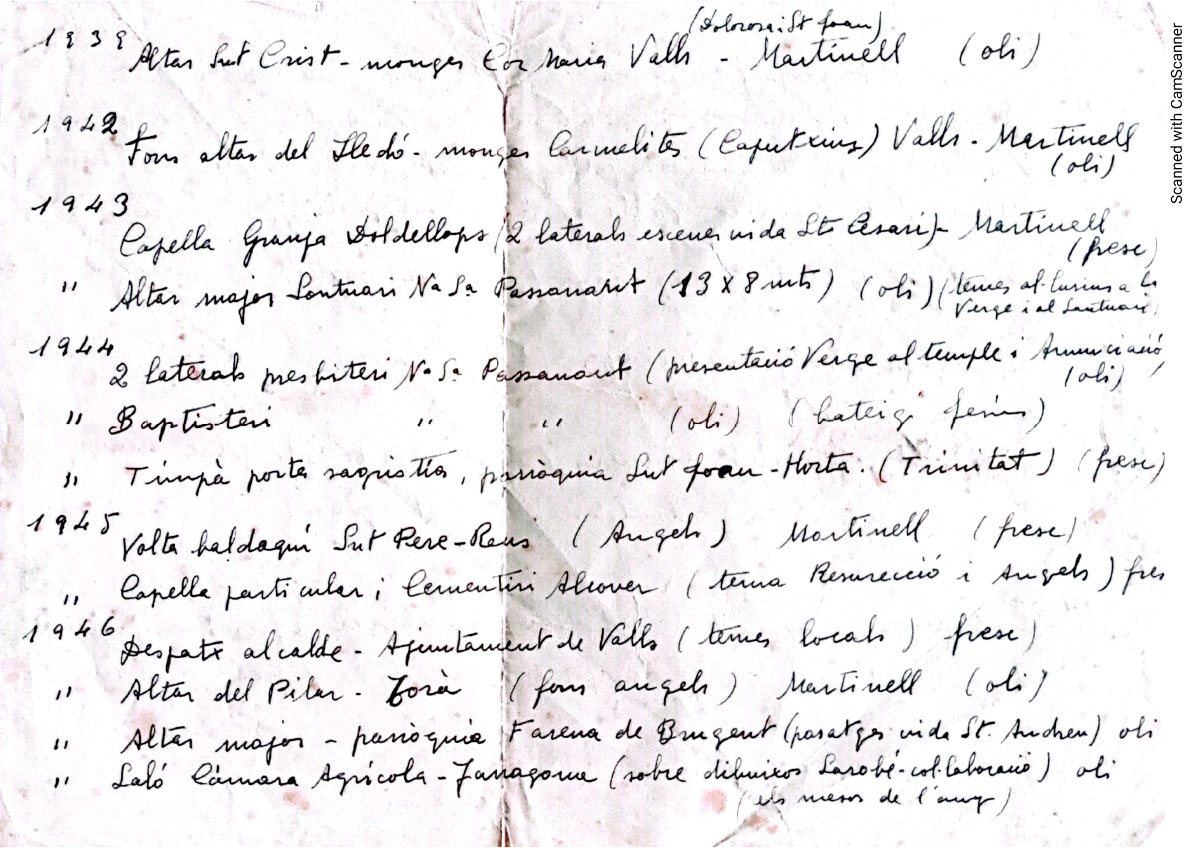 (Dolorosa i St Joan)
1939 Altar Snt Crist - monges Cor Maria Valls - Martinell (oli)
1942 Fons altar del Lledó - monges Carmelites (Caputxins) Valls - Martinell
(oli)
1943 Capella Granja Doldellops (2 laterals escenes vida St. Cesari) - Martinell
(fresc)
" Altar major Santuari Na Sa Passanant (13 x 8 mts) (oli) (temes al·lusius a la
Verge i al Santuari)
1944 2 laterals presbiteri Na Sa Passanant (presentació Verge al temple i Anunciació,
(oli)
" Baptisteri " " (oli) (bateig Jesús)
" Timpà porta sagristia, parròquia Snt Joan - Horta. (Trinitat) (fresc)
1945 Volta baldaquí Snt Pere - Reus (Angels) Martinell (fresc)
" Capella particular i Cementiri Alcover (tema Resurecció i Angels) fres
1946 Despatx alcalde - Ajuntament de Valls (temes locals) fresc)
" Altar del Pilar - Torà (fons angels) Martinell (oli)
" Altar major - parròquia Farena de Brugent (pasatges vida St. Andreu) oli
" Saló Càmara Agrícola - Tarragona (sobre dibuixos Sarobé - col·laboració) oli
(els mesos de l'any)
Scanned with CamScanner